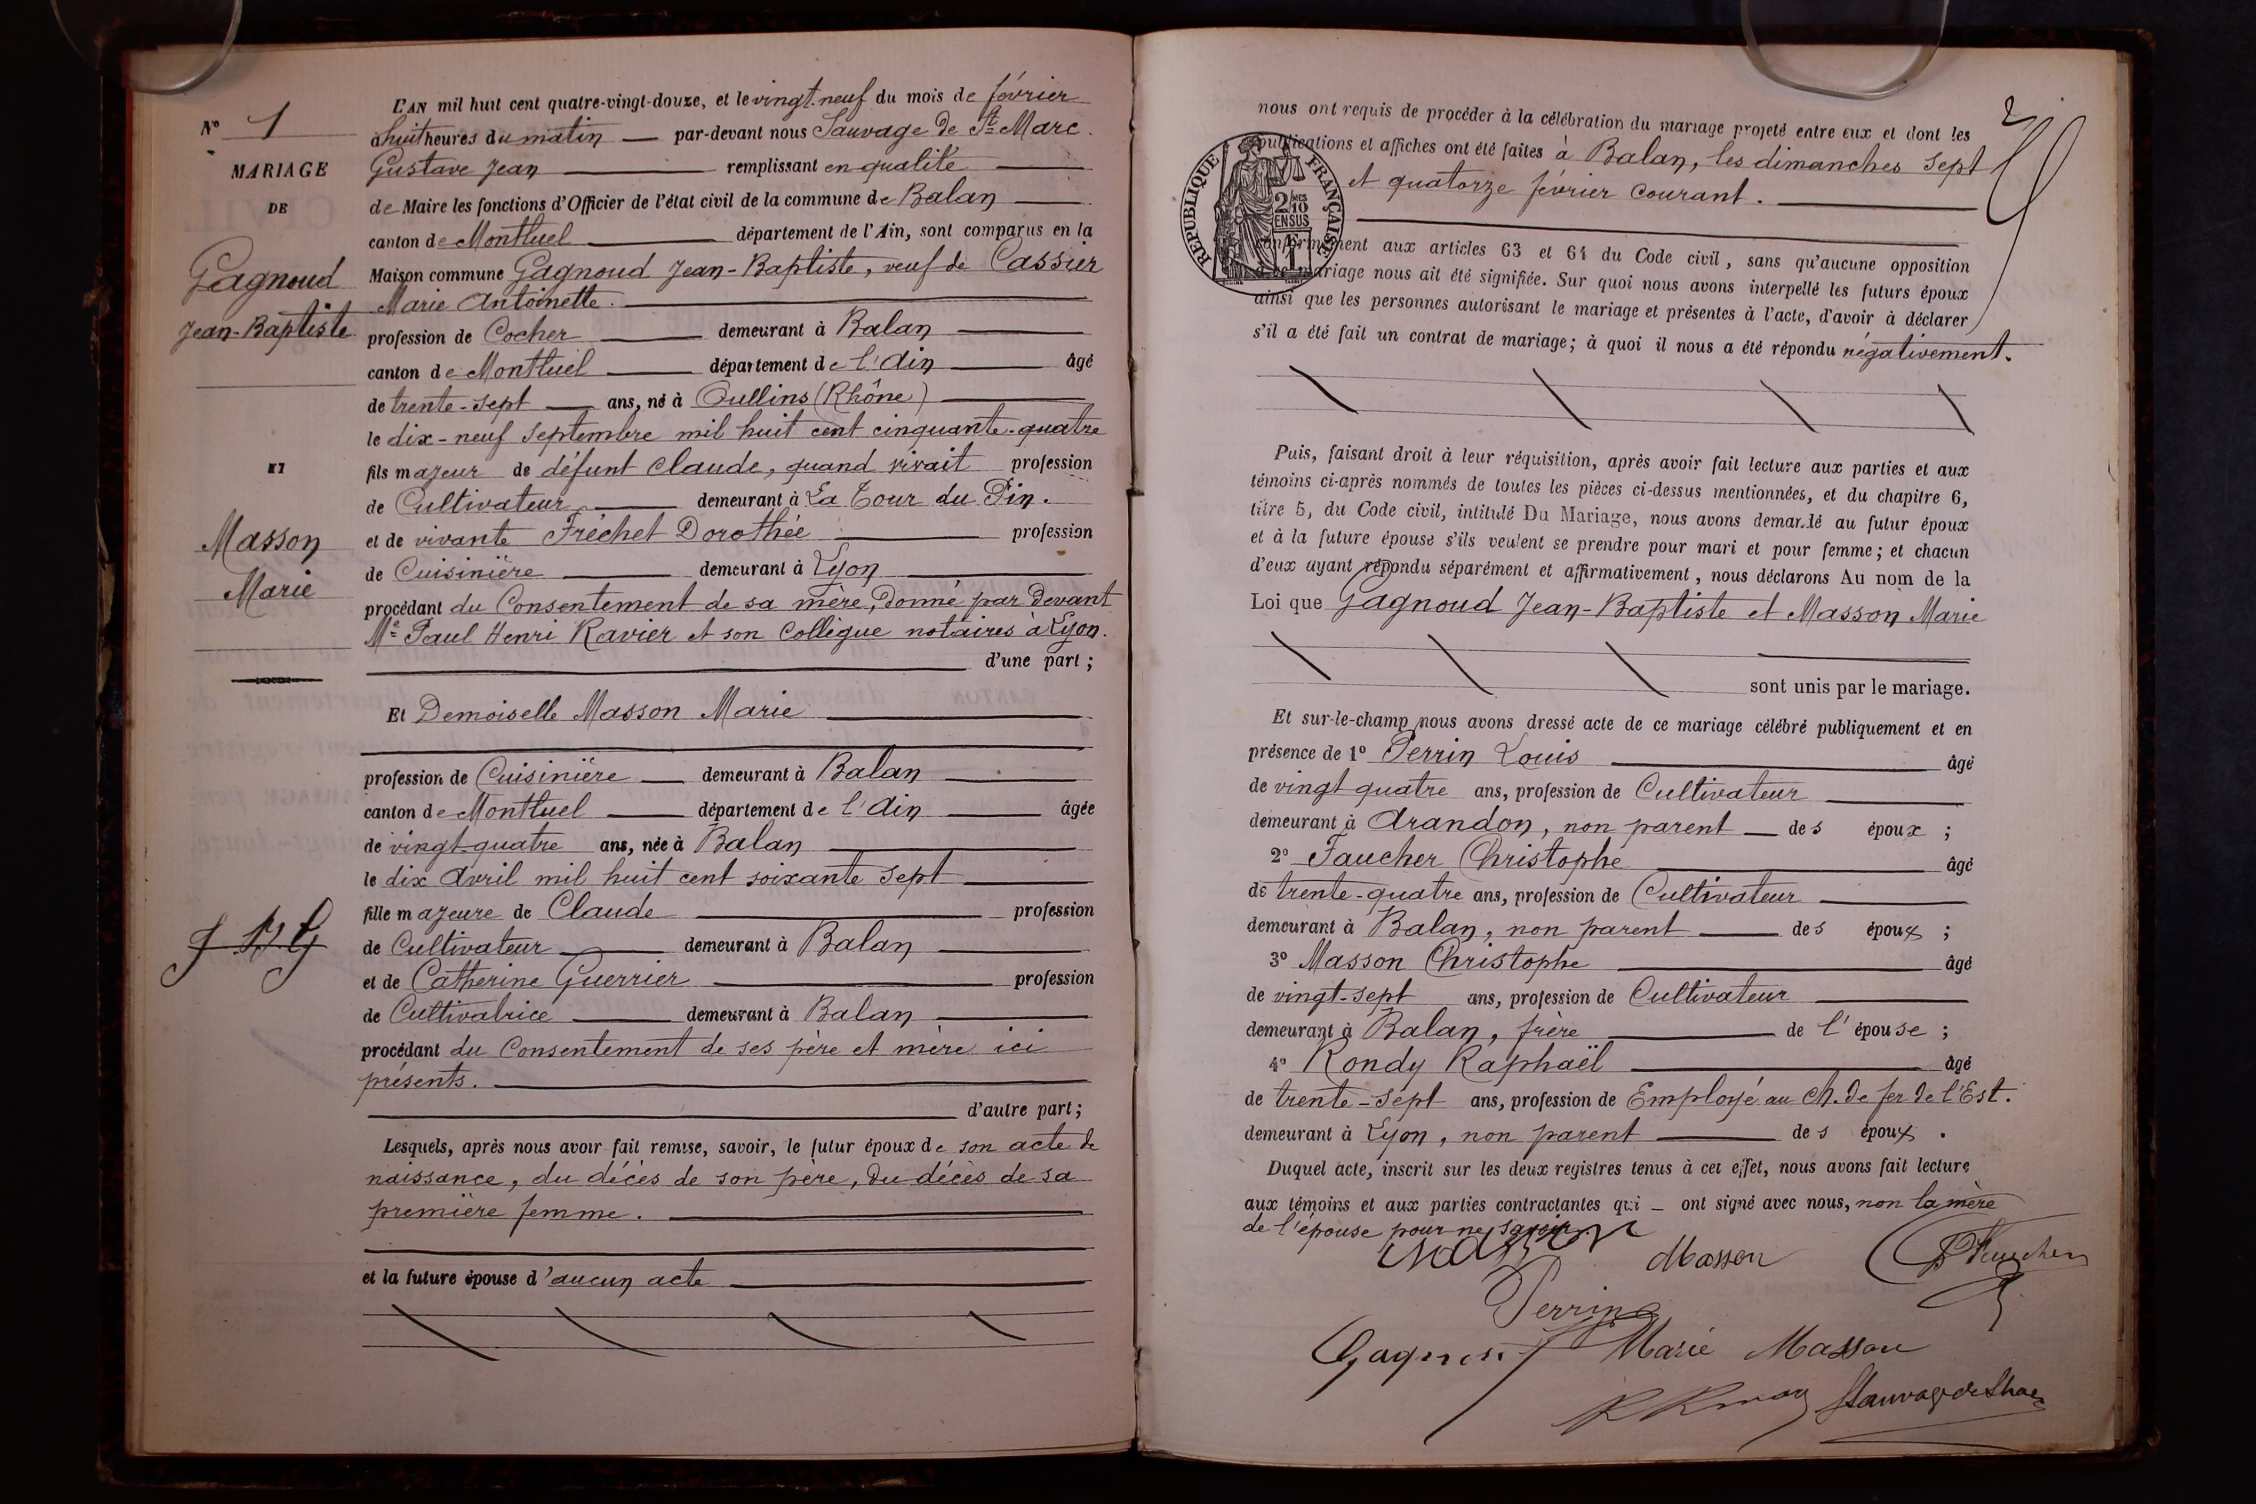 N° 1
MARIAGE
DE
Gagnoud
Jean-Baptiste
ET
Masson
Marie
J B G
L'AN mil huit cent quatre-vingt-douze, et le vingt-neuf du mois de février
à huit heures du matin — par-devant nous Sauvage de St Marc
Gustave Jean — remplissant en qualité —
de Maire les fonctions d'Officier de l'état civil de la commune de Balan —
canton de Montluel — département de l'Ain, sont comparus en la
Maison commune Gagnoud Jean-Baptiste, veuf de Cassier
Marie Antoinette. —
profession de Cocher — demeurant à Balan —
canton de Montluel — département de l'Ain — âgé
de trente-sept — ans, né à Oullins (Rhône) —
le dix-neuf septembre mil huit cent cinquante-quatre
fils majeur de défunt Claude, quand vivait profession
de Cultivateur — demeurant à La Tour du Pin.
et de vivante Fréchet Dorothée — profession
de Cuisinière — demeurant à Lyon —
procédant du Consentement de sa mère, donné par devant
Me Paul Henri Ravier et son Collègue notaires à Lyon.
— d'une part ;
Et Demoiselle Masson Marie —
profession de Cuisinière — demeurant à Balan —
canton de Montluel — département de l'Ain — âgée
de vingt-quatre ans, née à Balan —
le dix Avril mil huit cent soixante sept —
fille majeure de Claude — profession
de Cultivateur — demeurant à Balan —
et de Catherine Guerrier — profession
de Cultivatrice — demeurant à Balan —
procédant du Consentement de ses père et mère ici
présents. —
— d'autre part ;
Lesquels, après nous avoir fait remise, savoir, le futur époux de son acte de
naissance, du décès de son père, du décès de sa
première femme. —
et la future épouse d'aucun acte —
2
nous ont requis de procéder à la célébration du mariage projeté entre eux et dont les
publications et affiches ont été faites à Balan, les dimanches sept
et quatorze février courant. —
REPUBLIQUE FRANÇAISE
2/10 MES
EN SUS
1F
conformément aux articles 63 et 64 du Code civil, sans qu'aucune opposition
à ce mariage nous ait été signifiée. Sur quoi nous avons interpellé les futurs époux
ainsi que les personnes autorisant le mariage et présentes à l'acte, d'avoir à déclarer
s'il a été fait un contrat de mariage ; à quoi il nous a été répondu négativement.
Puis, faisant droit à leur réquisition, après avoir fait lecture aux parties et aux
témoins ci-après nommés de toutes les pièces ci-dessus mentionnées, et du chapitre 6,
titre 5, du Code civil, intitulé Du Mariage, nous avons demandé au futur époux
et à la future épouse s'ils veulent se prendre pour mari et pour femme ; et chacun
d'eux ayant répondu séparément et affirmativement, nous déclarons Au nom de la
Loi que Gagnoud Jean-Baptiste et Masson Marie
— sont unis par le mariage.
Et sur-le-champ nous avons dressé acte de ce mariage célébré publiquement et en
présence de 1° Perrin Louis — âgé
de vingt quatre ans, profession de Cultivateur —
demeurant à Arandon, non parent — des époux ;
2° Faucher Christophe — âgé
de trente-quatre ans, profession de Cultivateur —
demeurant à Balan, non parent — des époux ;
3° Masson Christophe — âgé
de vingt-sept ans, profession de Cultivateur —
demeurant à Balan, frère — de l'épouse ;
4° Rondy Raphaël — âgé
de trente-sept ans, profession de Employé au Ch. de fer de l'Est.
demeurant à Lyon, non parent — des époux .
Duquel acte, inscrit sur les deux registres tenus à cet effet, nous avons fait lecture
aux témoins et aux parties contractantes qui — ont signé avec nous, non la mère
de l'épouse pour ne savoir.
Masson Masson
Perrin
Gagnoud Marie Masson